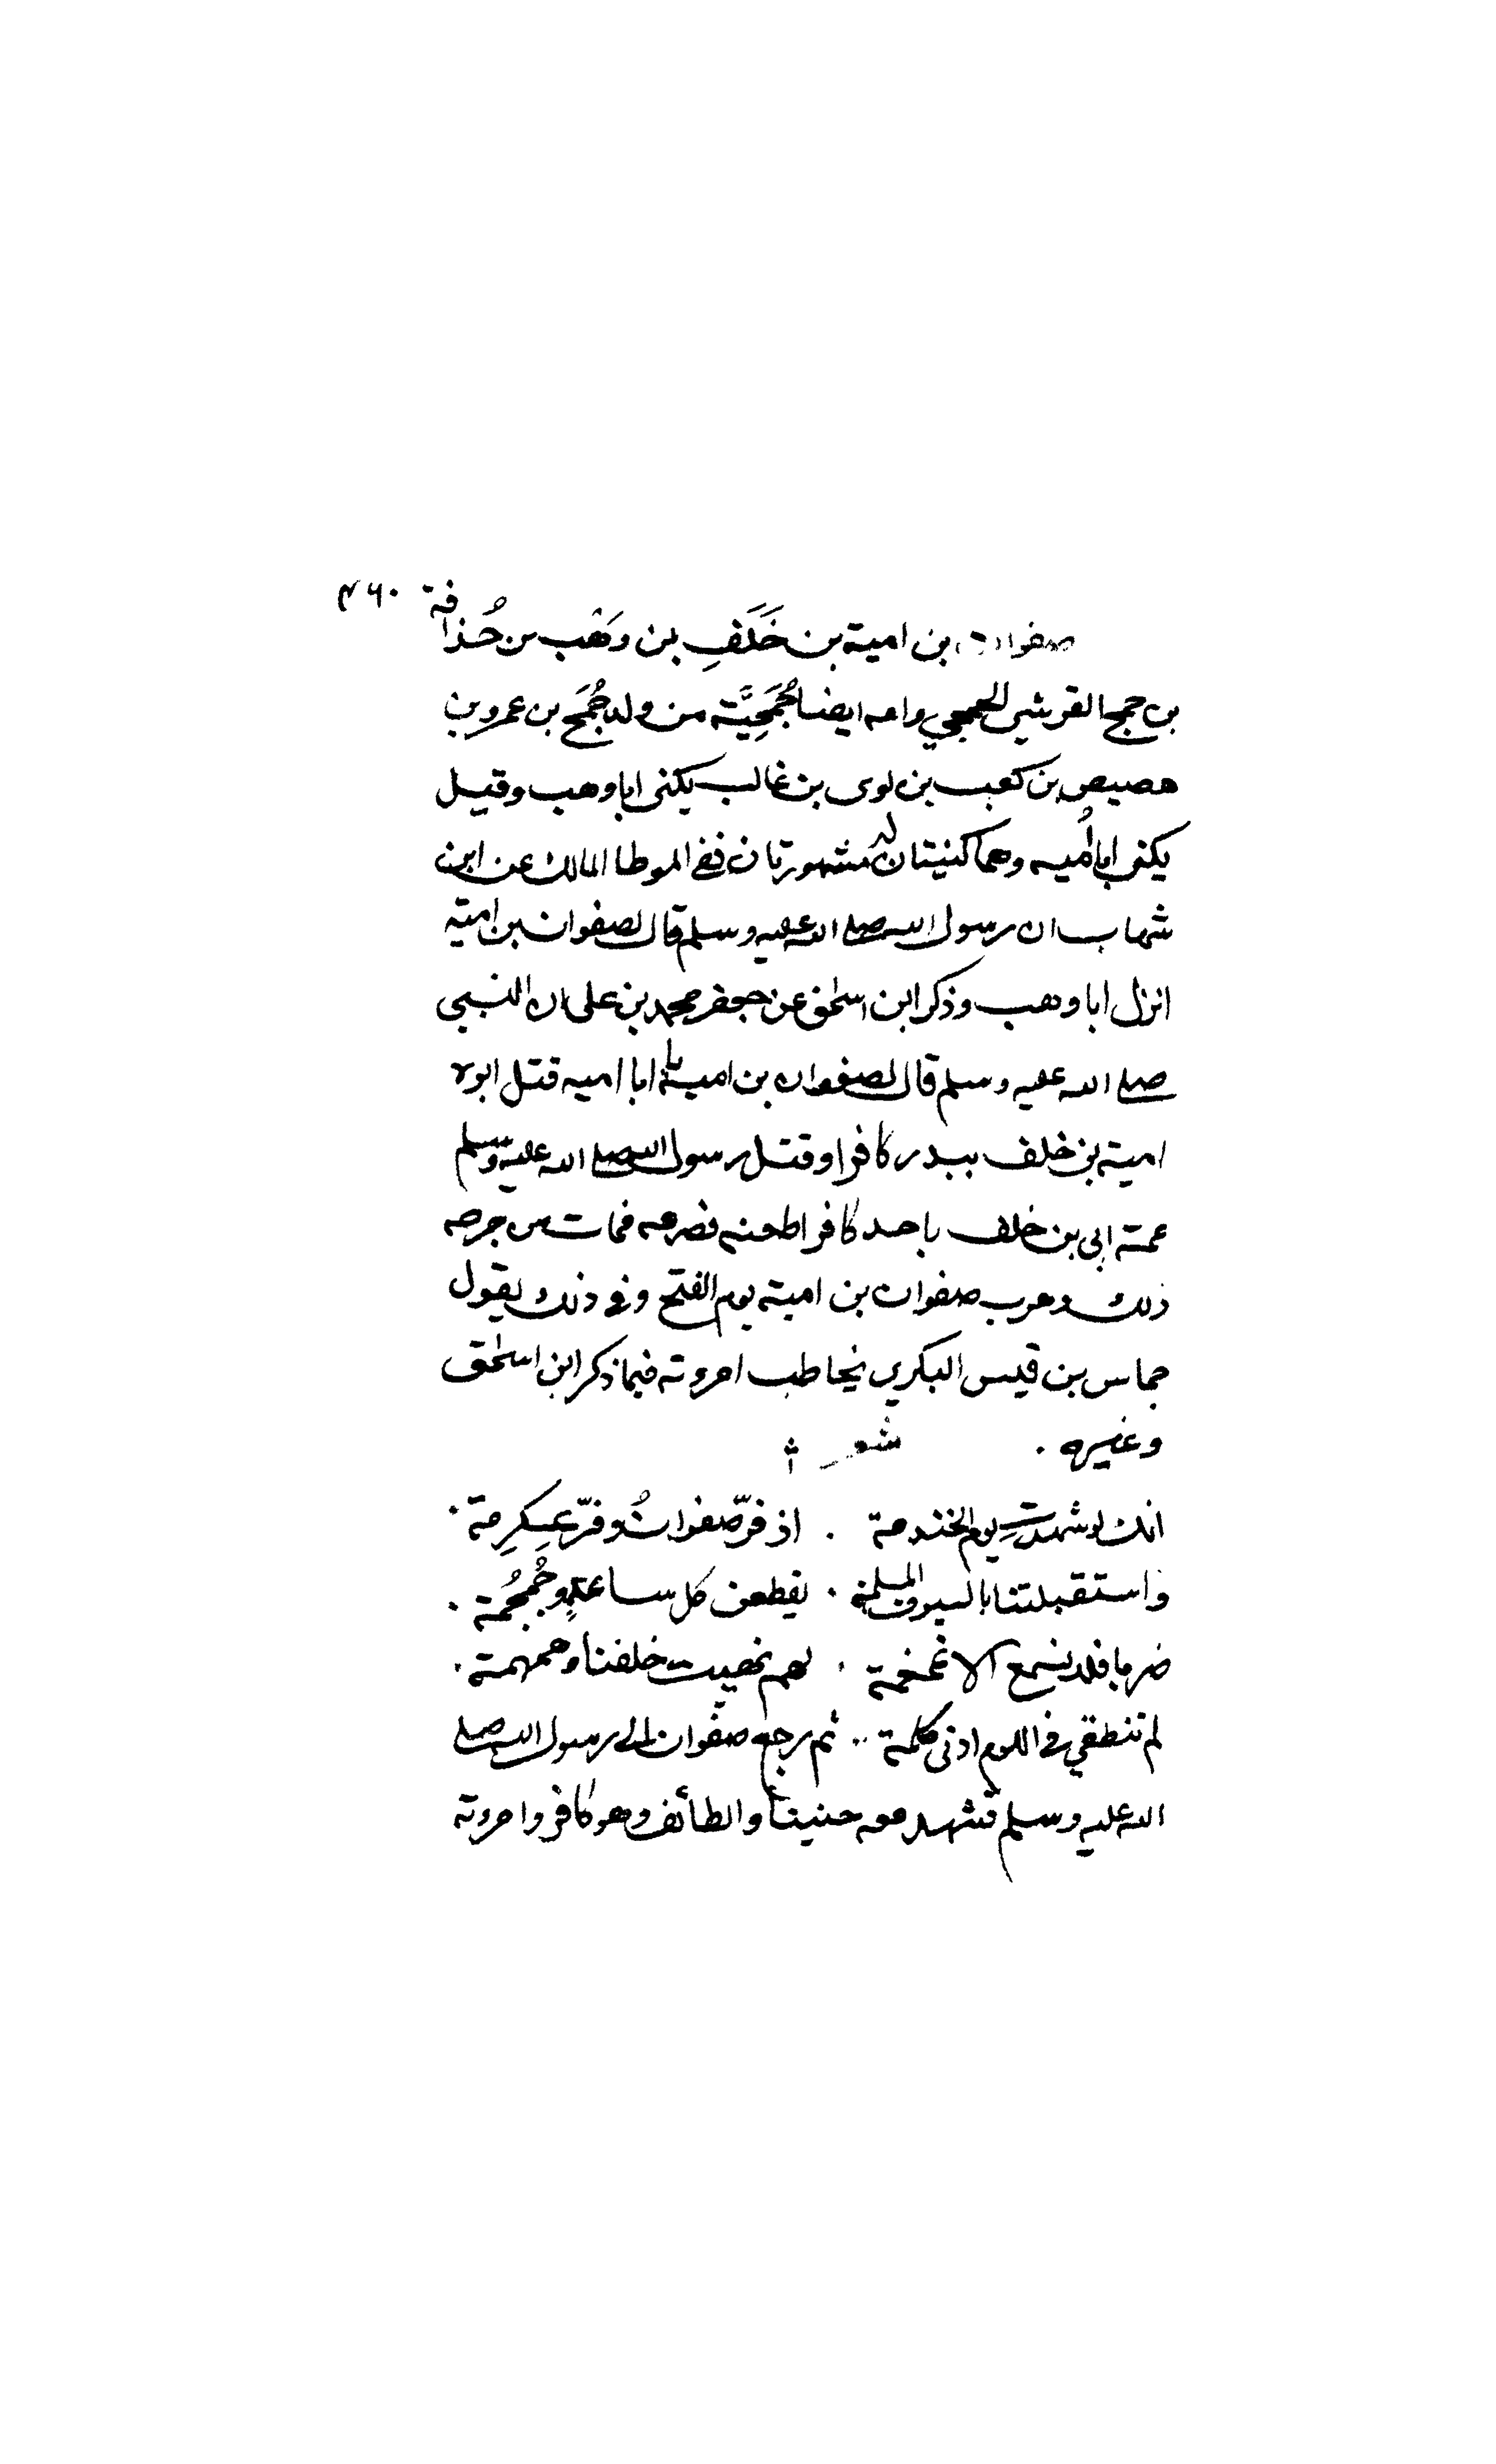 ٤٦٠
صفوان بن امية بن خَلَفِ بن وَهْب بن حُذافة
بن جمح القرشي الجمحي وامه ايضا جُمَحِيَّة من ولد جُمَح بن عمرو بن
هصيص بن كعب بن لوى بن غالب يكنى ابا وهب وقيل
يكنى ابا أُميه وهما كنيتان له مشهورتان ففي الموطا المالك عن ابن
شهاب ان رسول الله صلى الله عليه وسلم قال لصفوان بن امية
انزل ابا وهب وذكر ابن اسحٰق عن جعفر محمد بن على ان النبي
صلى الله عليه وسلم قال لصفوان بن امية يا ابا اميه قتل ابوه
امية بن خلف ببدر كافرا وقتل رسول الله صلى الله عليه وسلم
عمه ابي بن خلف باحد كافرا طعنه فصرعه فمات من جرحه
ذلك وهرب صفوان بن امية يوم الفتح وفي ذلك يقول
حماس بن قيس البكري يخاطب امروته فيما ذكر ابن اسحٰق
وغيره . شعر
انك لو شهدتِ يوم الخندمة . اذ فرّ صفوانُ وفرّ عِكرِمة .
واستقبلتنا بالسيوف المسلمة . يقطعن كل ساعدٍ وجُمجُمة .
ضربا فلا يسمع الا غمغمة . لهم نهيت خلفنا وهمهمة .
لم تنطقي في اللوم ادنى كلمة .. ثم رجع صفوان الى رسول الله صلى
الله عليه وسلم فشهد معه حنينا والطائف وهو كافر وامروته